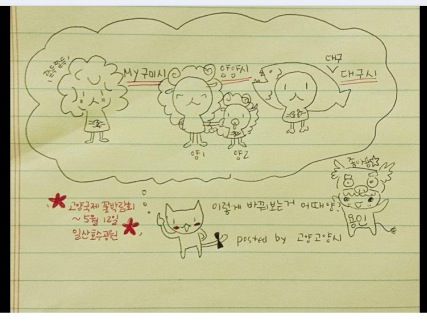 MY구미시
양양시
대구
대구시
양1
양2
좋아용
고양국제 꽃박람회
~ 5월 12일
일산호수공원
이렇게 바꿔보는거 어때양
용인
posted by 고양고양시